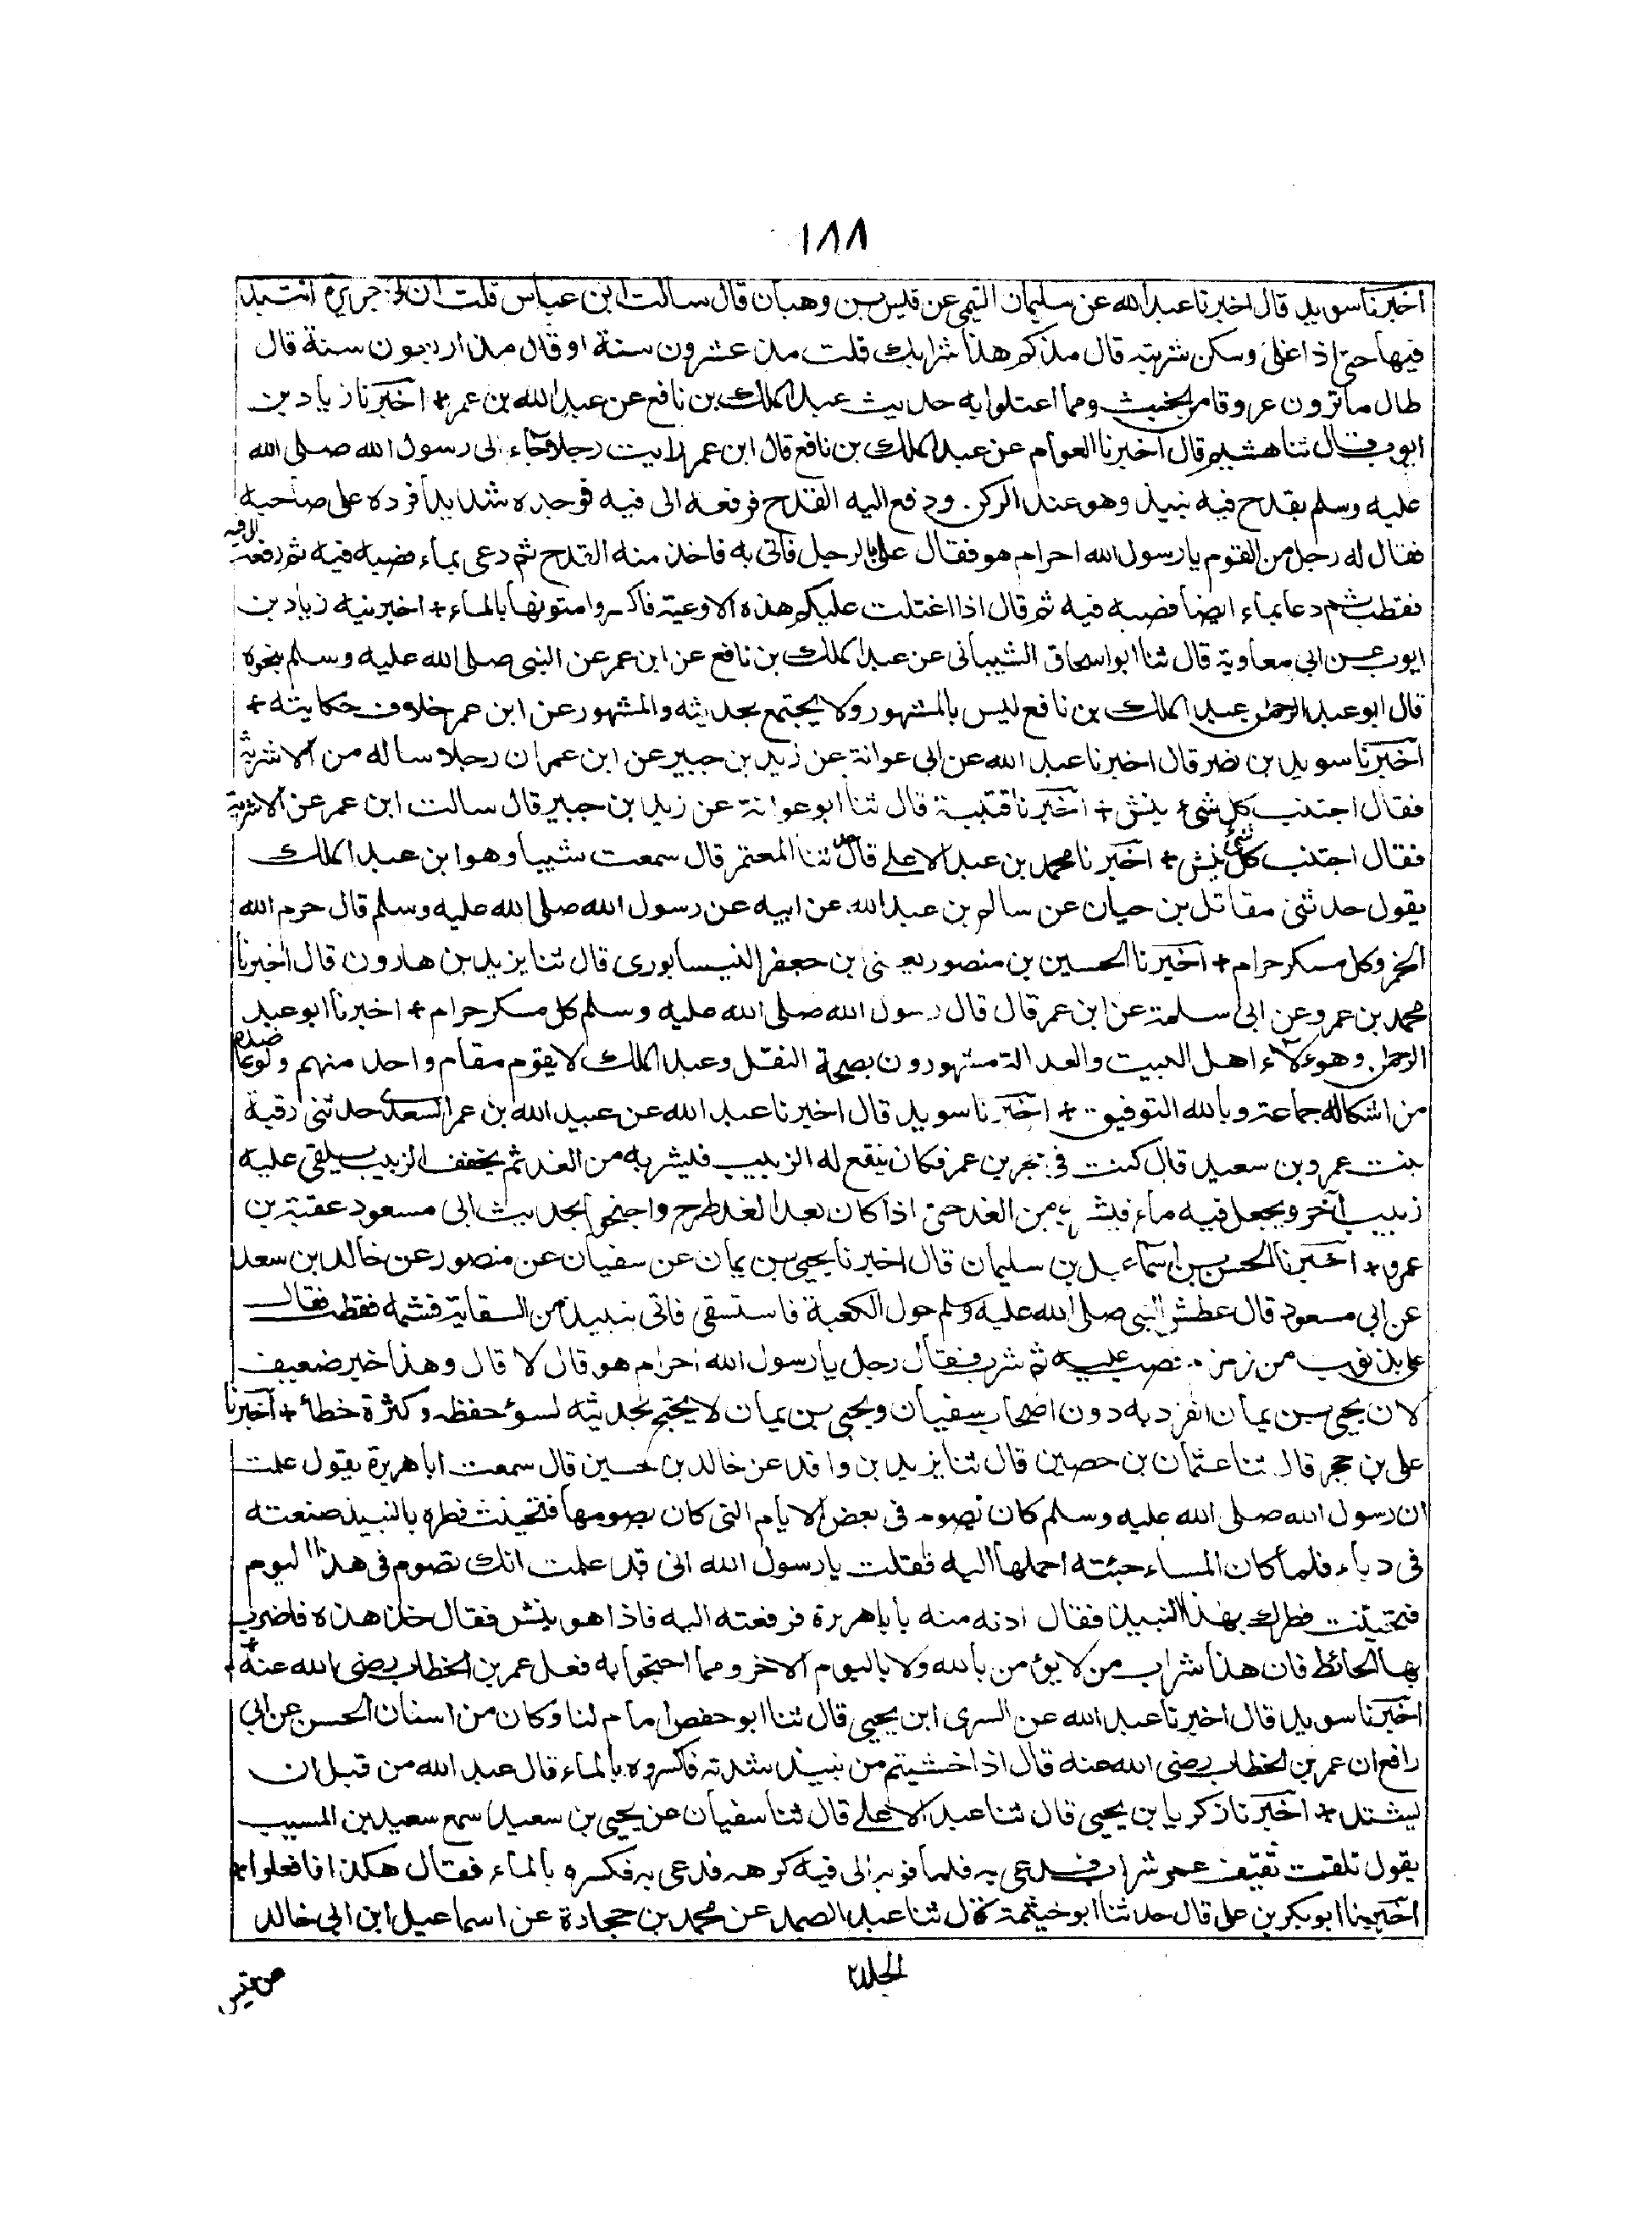 ١٨٨
اخبرنا سويد قال اخبرنا عبد الله عن سليمان التيمى عن قيس بن وهبان قال سالت ابن عباس قلت ان لى جريرة انتبذ
فيها حتى اذا غلى وسكن شربته قال مذ كم هذا شرابك قلت مذ عشرون سنة او قال مذ اربعون سنة قال
طال ما تروت عروقك من الخبث ومما اعتلوا به حديث عبد الملك بن نافع عن عبد الله بن عمر + اخبرنا زياد بن
ايوب قال ثنا هشيم قال اخبرنا العوام عن عبد الملك بن نافع قال ابن عمر رايت رجلا جاء الى رسول الله صلى الله
عليه وسلم بقدح فيه نبيذ وهو عند الركن ودفع اليه القدح فرفعه الى فيه فوجده شديدا فرده على صاحبه
فقال له رجل من القوم يا رسول الله احرام هو فقال على بالرجل فاتى به فاخذ منه القدح ثم دعى بماء فصبه فيه ثم رفعه الى فيه
فقطب ثم دعا بماء ايضا فصبه فيه ثم قال اذا اغتلت عليكم هذه الاوعية فاكسروا متونها بالماء + اخبرنيه زياد بن
ايوب عن ابى معاوية قال ثنا ابو اسحاق الشيبانى عن عبد الملك بن نافع عن ابن عمر عن النبى صلى الله عليه وسلم بنحوه
قال ابو عبد الرحمن عبد الملك بن نافع ليس بالمشهور ولا يحتج بحديثه والمشهور عن ابن عمر خلاف حكايته +
اخبرنا سويد بن نصر قال اخبرنا عبد الله عن ابى عوانة عن زيد بن جبير عن ابن عمر ان رجلا ساله من الاشربة
فقال اجتنب كل شىء ينش + اخبرنا قتيبة قال ثنا ابو عوانة عن زيد بن جبير قال سالت ابن عمر عن الاشربة
فقال اجتنب كل شئ ينش + اخبرنا محمد بن عبد الاعلى قال ثنا المعتمر قال سمعت شبيبا وهو ابن عبد الملك
يقول حدثنى مقاتل بن حيان عن سالم بن عبد الله عن ابيه عن رسول الله صلى الله عليه وسلم قال حرم الله
الخمر وكل مسكر حرام + اخبرنا الحسين بن منصور يعنى ابن جعفر النيسابورى قال ثنا يزيد بن هارون قال اخبرنا
محمد بن عمرو عن ابى سلمة عن ابن عمر قال قال رسول الله صلى الله عليه وسلم كل مسكر حرام + اخبرنا ابو عبد
الرحمن وهؤلاء اهل الثبت والعدالة مشهورون بصحة النقل وعبد الملك لا يقوم مقام واحد منهم ولو عاضده
من اشكاله جماعة وبالله التوفيق + اخبرنا سويد قال اخبرنا عبد الله عن عبيد الله بن عمر السعدى حدثتنى رقية
بنت عمرو بن سعيد قال كنت فى حجر بن عمر فكان ينقع له الزبيب فليشربه من الغد ثم يخفف الزبيب يلقى عليه
زبيب آخر ويجعل فيه ماء فيشربه من الغد حتى اذا كان بعد الغد طرح واحتجوا بحديث ابى مسعود عقبة بن
عمرو + اخبرنا الحسن بن اسماعيل بن سليمان قال اخبرنا يحيى بن يمان عن سفيان عن منصور عن خالد بن سعد
عن ابى مسعود قال عطش النبى صلى الله عليه وسلم حول الكعبة فاستسقى فاتى بنبيذ من السقاية فشمه فقطب فقال
على بذنوب من زمزم فصب عليه ثم شرب فقال رجل يا رسول الله احرام هو قال لا قال وهذا خبر ضعيف
لان يحيى بن يمان انفرد به دون اصحاب سفيان ويحيى بن يمان لا يحتج بحديثه لسوء حفظه وكثرة خطأ + اخبرنا
على بن حجر قال ثنا عثمان بن حصين قال ثنا يزيد بن واقد عن خالد بن حسين قال سمعت ابا هريرة يقول علمت
ان رسول الله صلى الله عليه وسلم كان يصوم فى بعض الايام التى كان يصومها فتحينت فطره بالنبيذ صنعته
فى دباء فلما كان المساء جئته احملها اليه فقلت يا رسول الله انى قد علمت انك تصوم فى هذا اليوم
فتحينت فطرك بهذا النبيذ فقال ادنه منه يا باهريرة فرفعته اليه فاذا هو ينش فقال خذ هذه فاضرب
بها الحائط فان هذا شراب من لا يؤمن بالله ولا باليوم الاخر ومما احتجوا به فعل عمر بن الخطاب رضى الله عنه +
اخبرنا سويد قال اخبرنا عبد الله عن السرى ابن يحيى قال ثنا ابو حفص امام لنا وكان من اسنان الحسن عن ابى
رافع ان عمر بن الخطاب رضى الله عنه قال اذا خشيتم من نبيذ شدته فاكسروه بالماء قال عبد الله من قبل ان
يشتد + اخبرنا زكريا بن يحيى قال ثنا عبد الاعلى قال ثنا سفيان عن يحيى بن سعيد سمع سعيد بن المسيب
يقول تلقت ثقيف عمر شراب فدعى به فلما قربه الى فيه كرهه فدعى به فكسره بالماء فقال هكذا فافعلوا +
اخبرنا ابو بكر بن على قال حدثنا ابو خيثمة قال ثنا عبد الصمد عن محمد بن جحادة عن اسماعيل ابن ابى خالد
الجلد٢
عن قيس